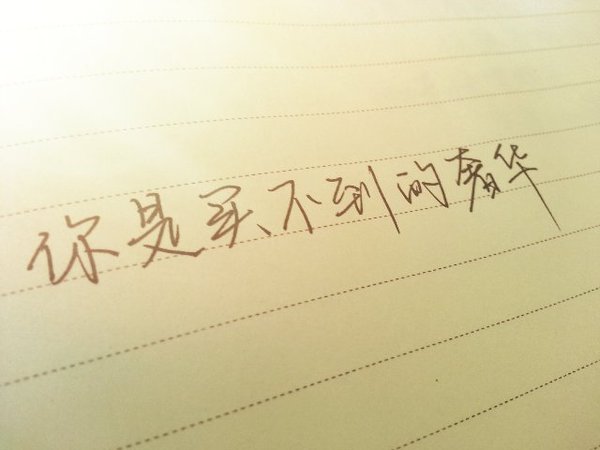 你是买不到的奢华